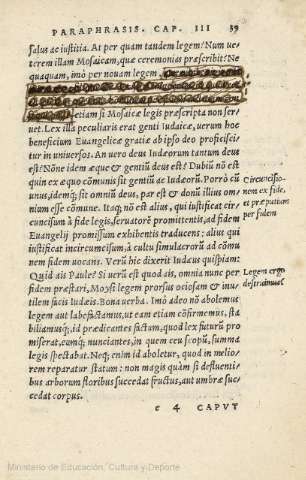 PARAPHRASIS. CAP. III 39
salus ac iustitia. At per quam tandem legem? Num ue-
terem illam Mosaicam, quæ ceremonias præscribit? Ne
quaquam, imò per nouam legem,
etiam si Mosaicæ legis præscripta non ser
uet. Lex illa peculiaris erat genti Iudaicæ, uerum hoc
beneficium Euangelicæ gratiæ ab ipso deo proficisci-
tur in uniuersos. An uero deus Iudæorum tantum deus
est? Nōne idem æque & gentiū deus est? Dubiū nō est
quin ex æquo cōmunis sit gentiū ac Iudæorū. Porrò cū
unus, idemq; sit omniū deus, par est & donū illius om-
nium esse cōmune. Itaq; nō est alius, qui iustificat cir-
cuncisum à fide legis, seruatorē promittentis, ad fidem
Euangelij promissum exhibentis traducens: alius qui
iustificat incircumcisum, à cultu simulacrorū ad cōmu
nem fidem uocans. Verū hîc dixerit Iudæus quispiam:
Quid ais Paule? Si uerū est quod ais, omnia nunc per
fidem præstari, Moysi legem prorsus ociosam & inu-
tilem facis Iudæis. Bona uerba. Imò adeo nō abolemus
legem aut labefactamus, ut eam etiam cōfirmemus, sta
biliamusq́;, id prædicantes factum, quod lex futurū pro
miserat, eumq́; nunciantes, in quem ceu scopū, summa
legis spectabat. Neq; enim id aboletur, quod in melio-
rem reparatur statum: non magis quàm si defluenti-
bus arborum floribus succedat fructus, aut umbræ suc-
cedat corpus.
Circuncisio-
nem ex fide,
et præputium
per fidem
Legem ergo
destruimus
e 4 CAPVT
Ministerio de Educación, Cultura y Deporte